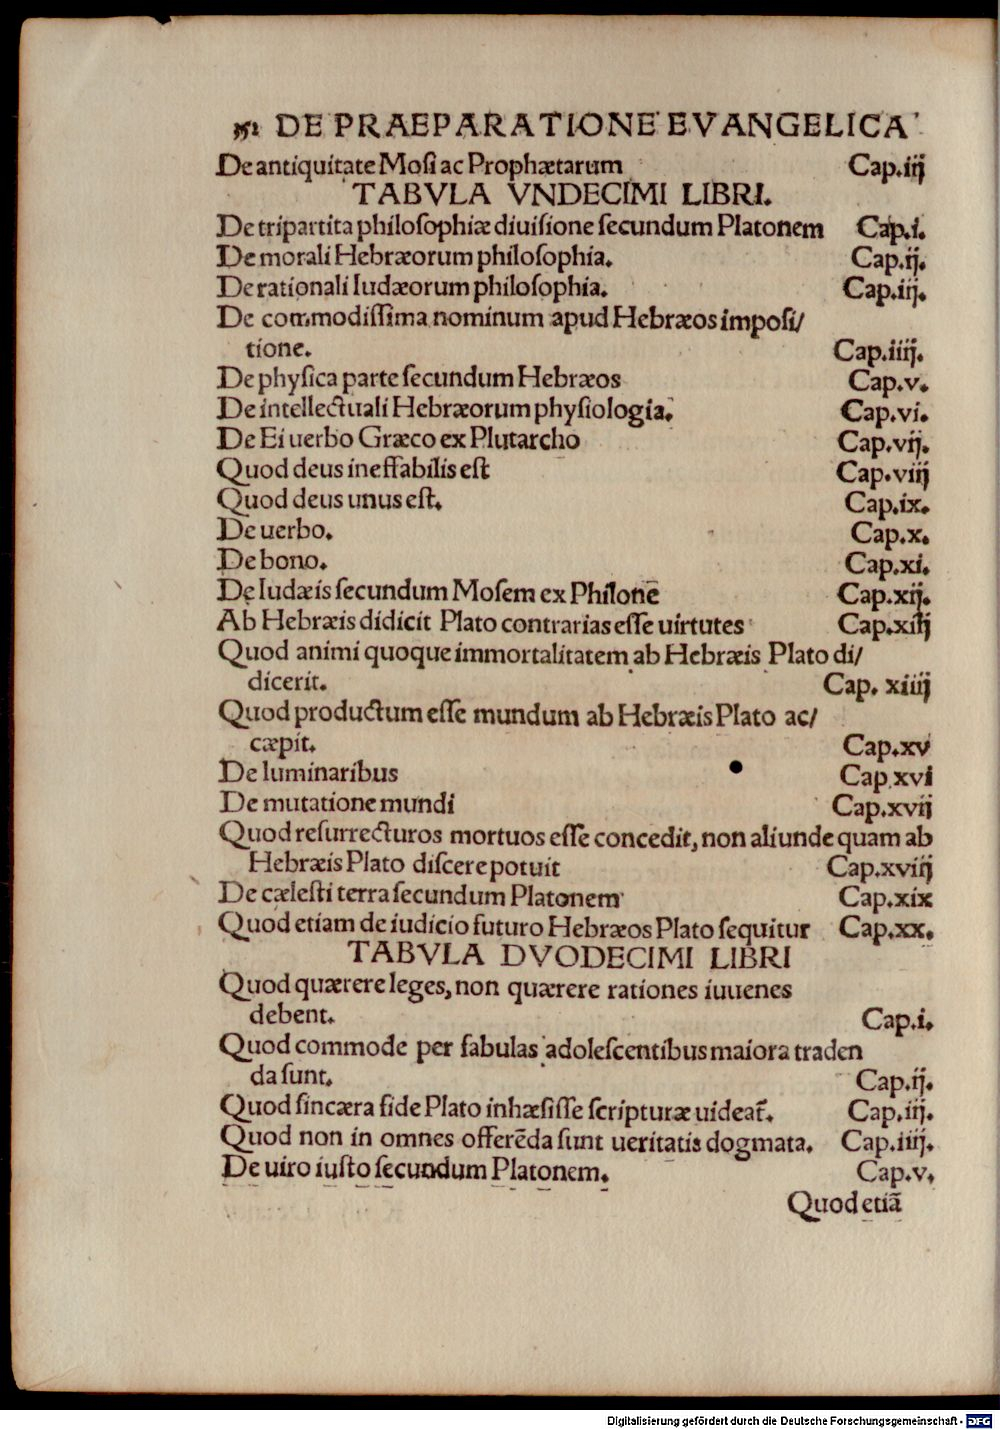 152 DE PRAEPARATIONE EVANGELICA
De antiquitate Mosi ac Prophætarum Cap.iij
TABVLA VNDECIMI LIBRI.
De tripartita philosophiæ diuisione secundum Platonem Cap.i.
De morali Hebræorum philosophia. Cap.ij.
De rationali Iudæorum philosophia. Cap.iij.
De commodissima nominum apud Hebræos imposi/
tione. Cap.iiij.
De physica parte secundum Hebræos Cap.v.
De intellectuali Hebræorum physiologia. Cap.vi.
De Ei uerbo Græco ex Plutarcho Cap.vij.
Quod deus ineffabilis est Cap.viij
Quod deus unus est. Cap.ix.
De uerbo. Cap.x.
De bono. Cap.xi.
De Iudæis secundum Mosem ex Philonē Cap.xij.
Ab Hebræis didicit Plato contrarias esse uirtutes Cap.xiij
Quod animi quoque immortalitatem ab Hebræis Plato di/
dicerit. Cap. xiiij
Quod productum esse mundum ab Hebræis Plato ac/
cæpit. Cap.xv
De luminaribus Cap.xvi
De mutatione mundi Cap.xvij
Quod resurrecturos mortuos esse concedit, non aliunde quam ab
Hebræis Plato discere potuit Cap.xviij
De cælesti terra secundum Platonem Cap.xix
Quod etiam de iudicio futuro Hebræos Plato sequitur Cap.xx.
TABVLA DVODECIMI LIBRI
Quod quærere leges, non quærere rationes iuuenes
debent. Cap.i.
Quod commode per fabulas adolescentibus maiora traden
da sunt. Cap.ij.
Quod sincæra fide Plato inhæsisse scripturæ uideat̃. Cap.iij.
Quod non in omnes offerēda sunt ueritatis dogmata. Cap.iiij.
De uiro iusto secundum Platonem. Cap.v.
Quod etiā
Digitalisierung gefördert durch die Deutsche Forschungsgemeinschaft - DFG